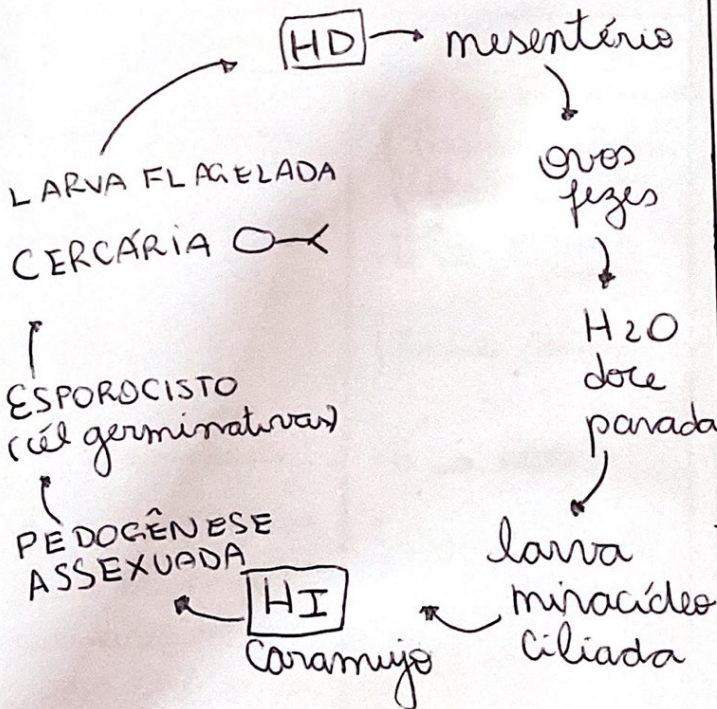 HD
mesentério
ovos
fezes
H2O
doce
parada
larva
miracídeo
ciliada
HI
caramujo
PEDOGÊNESE
ASSEXUADA
ESPOROCISTO
(cél germinativas)
CERCÁRIA
LARVA FLAGELADA